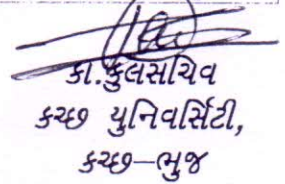 કા.કુલસચિવ
કચ્છ યુનિવર્સિટી,
કચ્છ–ભુજ